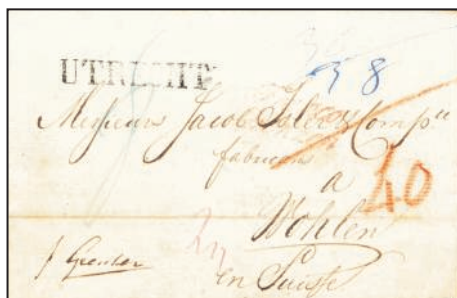 UTRECHT
38
Messieurs Jacob Isler & Comp.
fabricans
a
40
Wohlen
en Suisse